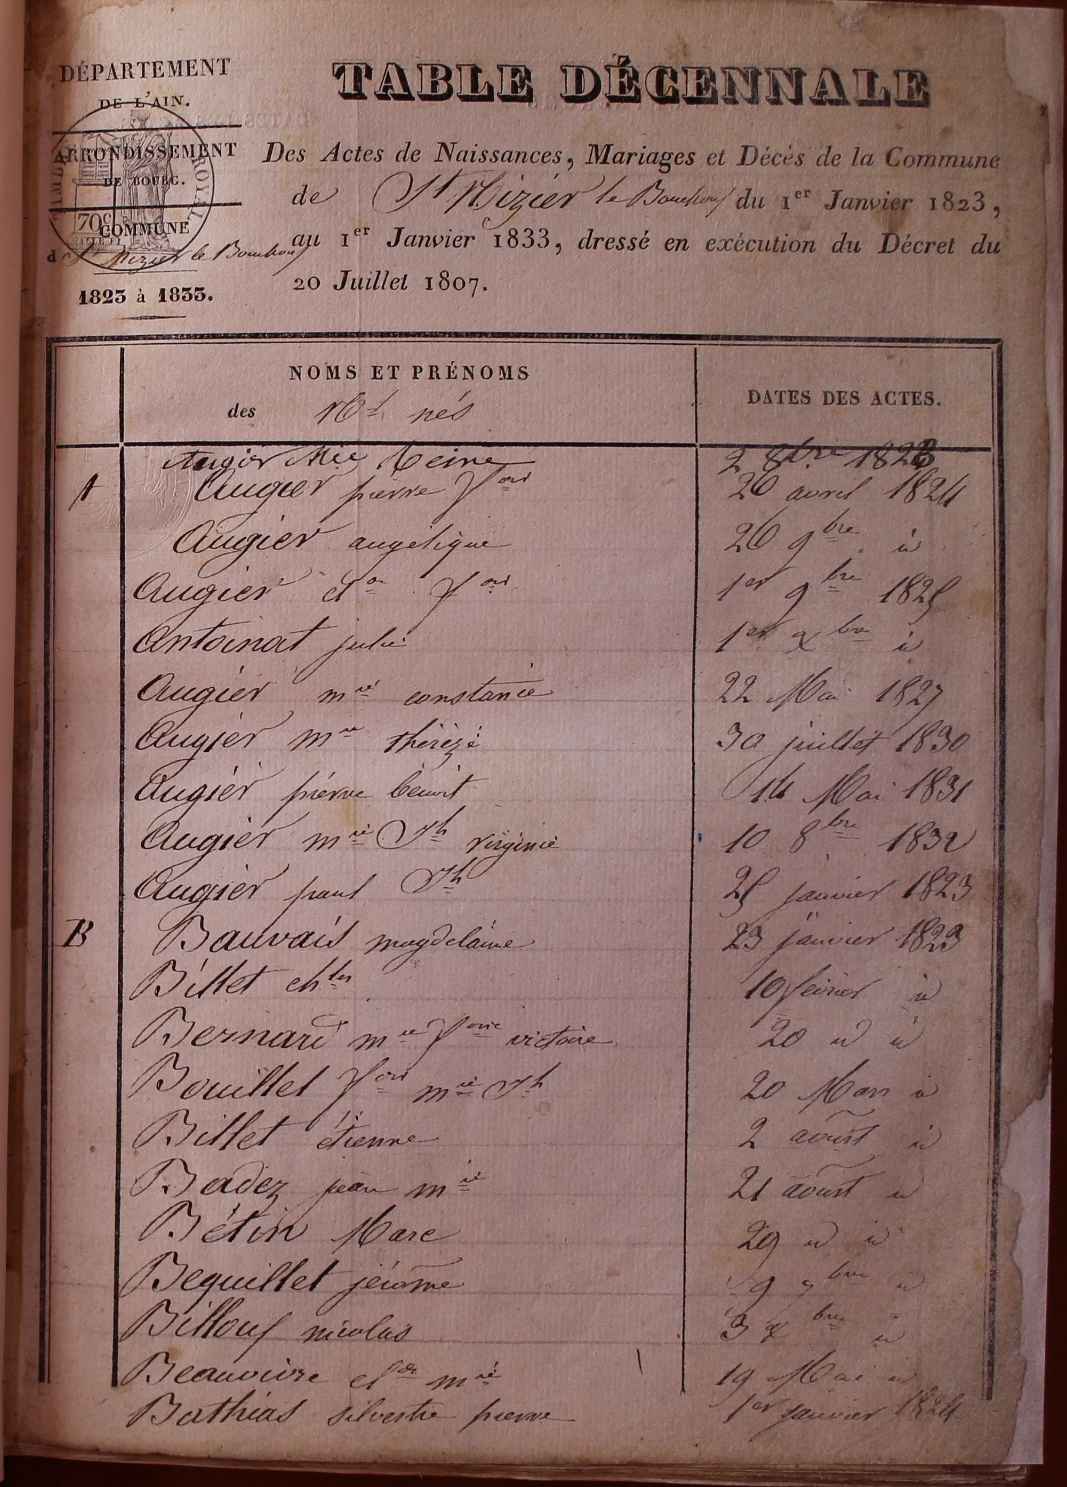 DÉPARTEMENT
DE L'AIN.
ARRONDISSEMENT
DE BOURG.
70c
ROYAL
COMMUNE
de St Nizier le Bouchoux
1823 à 1833.
TABLE DÉCENNALE
Des Actes de Naissances, Mariages et Décès de la Commune
de St Nizier le Bouchoux du 1er Janvier 1823,
au 1er Janvier 1833, dressé en exécution du Décret du
20 Juillet 1807.
NOMS ET PRÉNOMS
des nés
DATES DES ACTES.
Augier Mie Reine 2 8bre 1823
A Augier pierre fois 26 avril 1824
Augier angélique 26 9bre id
Augier fois 1er 9bre 1825
Antoinat julie 1er Xbre id
Augier mie constance 22 Mai 1827
Augier mie thérèze 30 juillet 1830
Augier pierre benoit 14 Mai 1831
Augier mie Jh virginie 10 8bre 1832
Augier paul Jh 25 janvier 1823
B Bauvais magdelaine 23 janvier 1823
Billet chles 10 février id
Bernard mie foise victoire 20 id id
Bouillet fois mie Jh 20 Mars id
Billet étienne 2 aoust id
Badez jean mie 21 aoust id
Bétin Marc 29 id id
Bequillet jérome 9 bre id
Billouf nicolas 3 Xbre id
Beauvivre clde mie 19 Mai id
Bathias silvestre pierre 1er janvier 1824